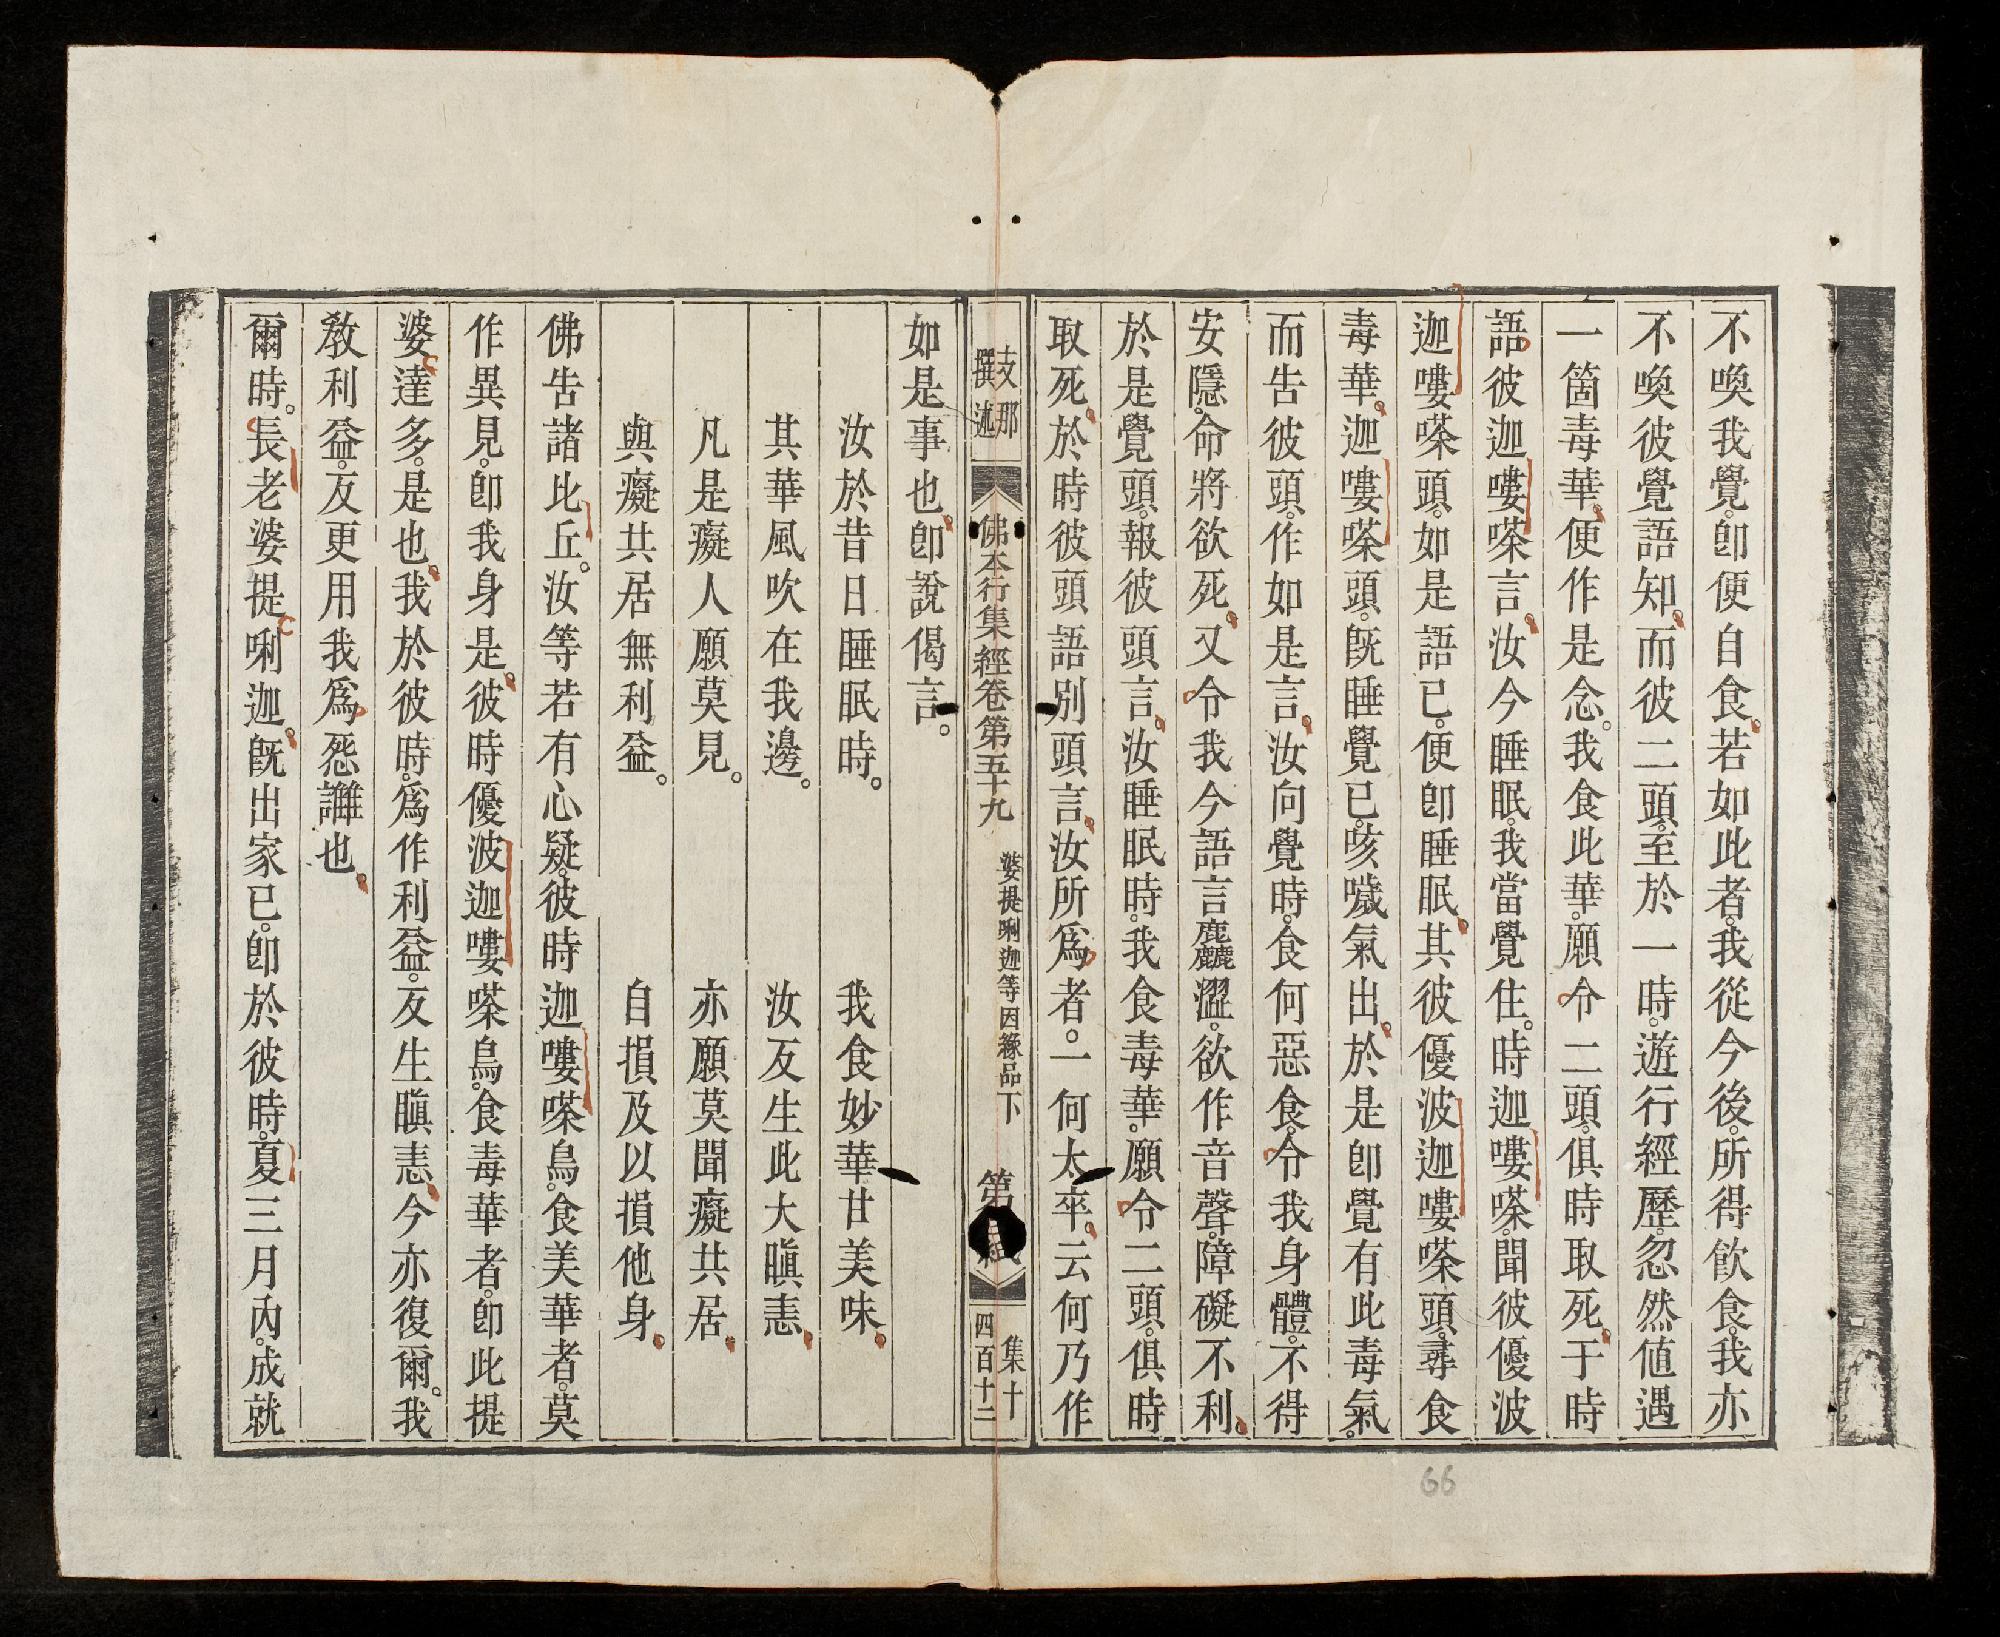 不喚我覺。卽便自食。若如此者。我從今後。所得飮食。我亦
不喚彼覺語知。而彼二頭。至於一時。遊行經歷。忽然値遇
一箇毒華。便作是念。我食此華。願令二頭。俱時取死。于時
語彼迦嘍嗏言。汝今睡眠。我當覺住。時迦嘍嗏。聞彼優波
迦嘍嗏頭。如是語已。便卽睡眠。其彼優波迦嘍嗏頭。尋食
毒華。迦嘍嗏頭。旣睡覺已。咳噦氣出。於是卽覺有此毒氣。
而告彼頭。作如是言。汝向覺時。食何惡食。令我身體。不得
安隱。命將欲死。又令我今語言麤澀。欲作音聲。障礙不利。
於是覺頭。報彼頭言。汝睡眠時。我食毒華。願令二頭。俱時
取死。於時彼頭語別頭言。汝所爲者。一何太卒。云何乃作
支那
撰述
佛本行集經卷第五十九
婆提唎迦等因緣品下
第
集十
四百十二
如是事也。卽說偈言。
汝於昔日睡眠時。 我食妙華甘美味。
其華風吹在我邊。 汝反生此大瞋恚。
凡是癡人願莫見。 亦願莫聞癡共居。
與癡共居無利益。 自損及以損他身。
佛告諸比丘。汝等若有心疑。彼時迦嘍嗏鳥。食美華者。莫
作異見。卽我身是。彼時優波迦嘍嗏鳥。食毒華者。卽此提
婆達多。是也。我於彼時。爲作利益。反生瞋恚。今亦復爾。我
敎利益。反更用我爲怨讎也。
爾時。長老婆提唎迦。旣出家已。卽於彼時。夏三月內。成就
66